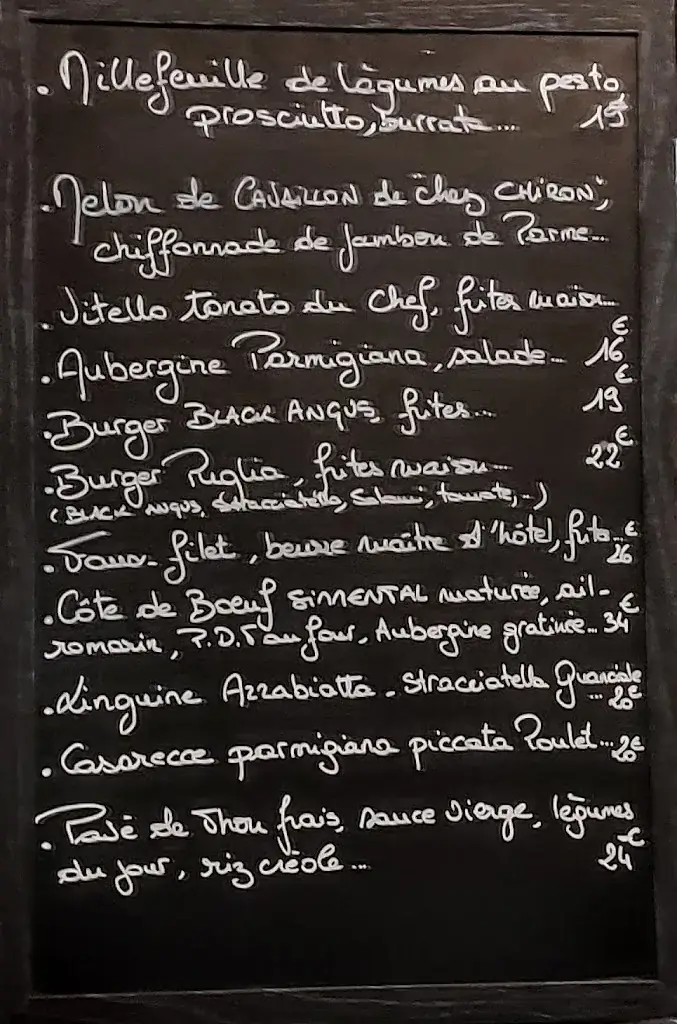 . Millefeuille de légumes au pesto,
prosciutto, burrata... 15€
. Melon de CAVAILLON de "chez CHIRON",
chiffonnade de jambon de Parme...
. Vitello tonato du Chef, frites maison...
. Aubergine Parmigiana, salade... 16€
. Burger BLACK ANGUS, frites... 19€
. Burger Puglia, frites maison... 22€
(BLACK ANGUS, Stracciatella, Salami, tomate, ...)
. Faux-filet, beurre maître d'hôtel, frites... 26€
. Côte de Boeuf SIMENTAL maturée, ail-
romarin, P.D.T au four, Aubergine gratinée... 34€
. Linguine Arrabiatta - Stracciatella Guanciale
... 20€
. Casarecce parmigiana piccata Poulet... 20€
. Pavé de Thon frais, sauce vierge, légumes
du jour, riz créole... 24€